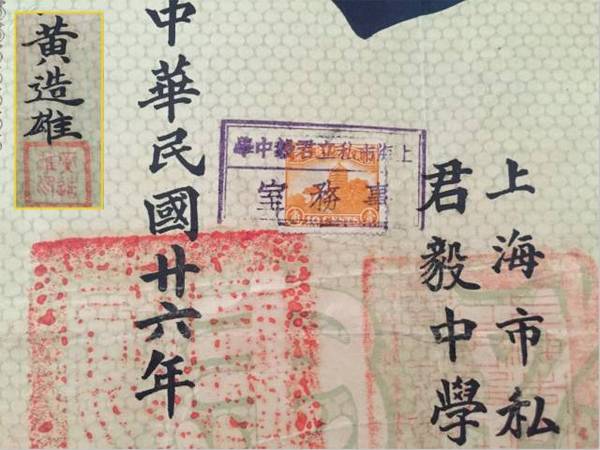 上海市私
君毅中學
上海市私立君毅中學
事務室
10 CENTS
中華民國廿六年
黃造雄